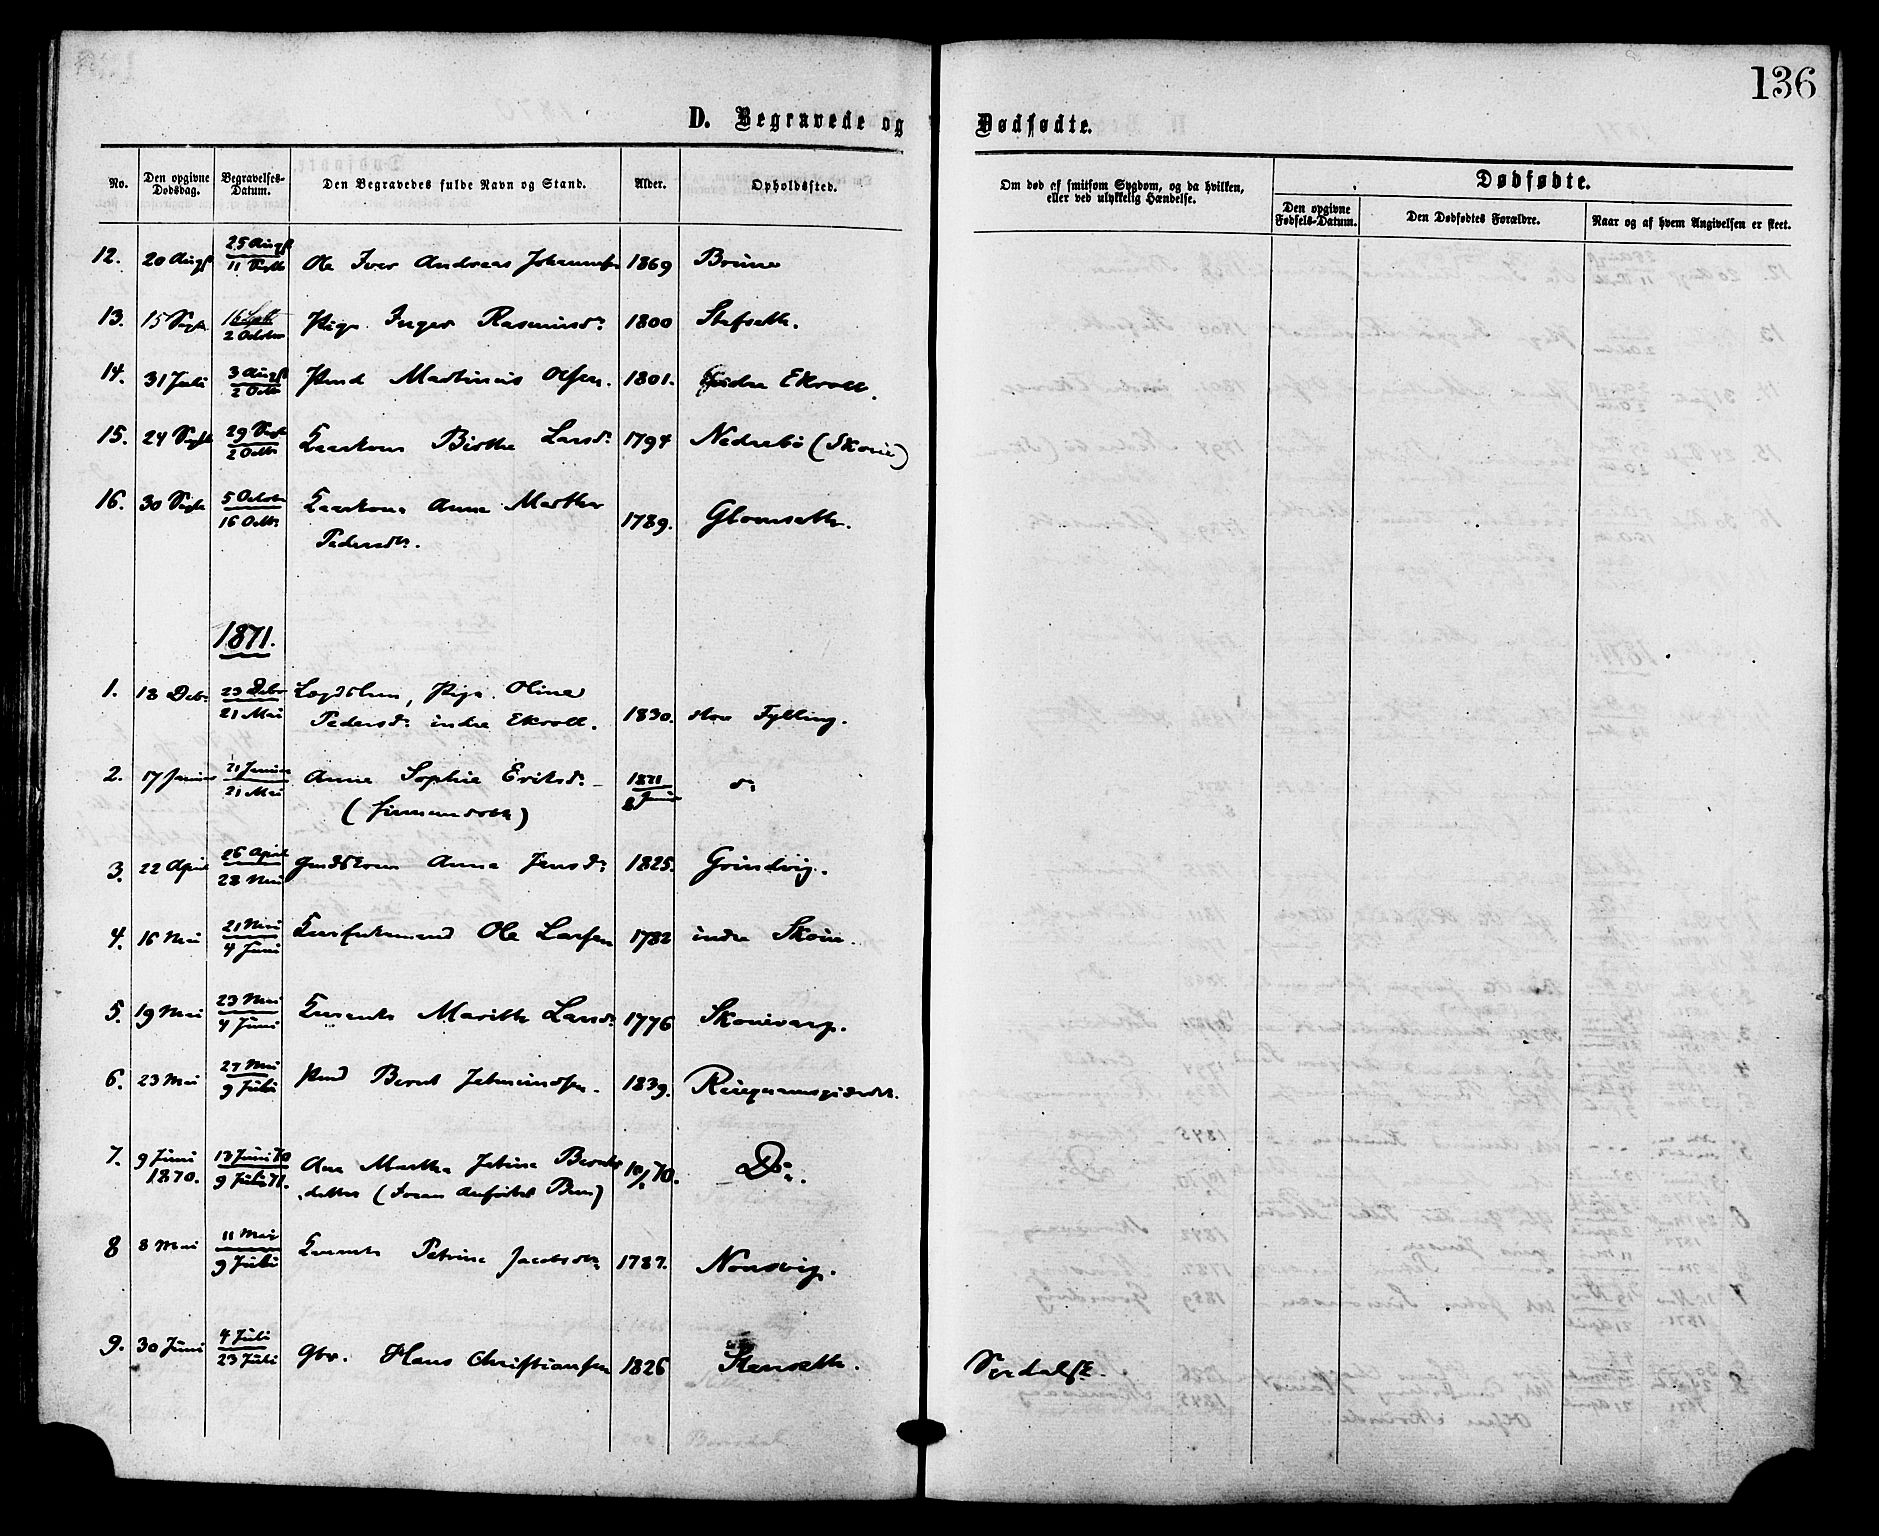 136
D. Begravede og Dødfødte.
No. Den opgivne Dødsdag. Begravelses-Datum. Den Begravedes fulde Navn og Stand. Alder. Opholdssted. Om død af smitsom Sygdom, og da hvilken, eller ved ulykkelig Hændelse. Dødfødte.
Den opgivne Fødsels-Datum. Den Dødfødtes Forældre. Naar og af hvem Angivelsen er skeet.
12. 20 Augst 25 Augst 11 Septb Ole Iver Andreas 1869 Brune
13. 15 Septb 16 Septb 2 October Pige Inger Rasmusdr 1800 Stafseth.
14. 31 Juli 3 Augst 2 Octb Martinus Olsen. 1801. indre Ekroll.
15. 24 Septb 29 Septb 2 Octbr Birthe Larsdr 1794 Nedrebö (Skorie)
16. 30 Septb 5 October 16 Octbr Anne Marthe
Pedersdtr. 1789. Glomseth.
1871.
1. 18 Debr 23 Debr 21 Mai Lægdslem, Pige Oline
Pedersdr indre Ekroll. 1830. store Fylling.
2. 17 Januar 21 Januar 21 Mai Anne Sophie Eriksdr 1871 8 Janr do
3. 22 April 26 April 28 Mai Anna Jensdr 1825. Grindvig.
4. 16 Mai 21 Mai 4 Juni Ole Larsen 1782 indre Skorie.
5. 19 Mai 23 Mai 4 Juni Marithe Larsdr 1776
6. 23 Mai 27 Mai 9 Juli Bernt 1839.
7. 9 Juni 1870. 13 Juni 70 9 Juli 71. Ane Martha Jetine Bernts
datter 10/70. Do.
8 8 Mai 11 Mai 9 Juli Petrine Jacobsdtr 1787. Norsvig.
9. 30 Juni 4 Juli 23 Juli Gbr. Hans Christiansen 1826 Stenseth.